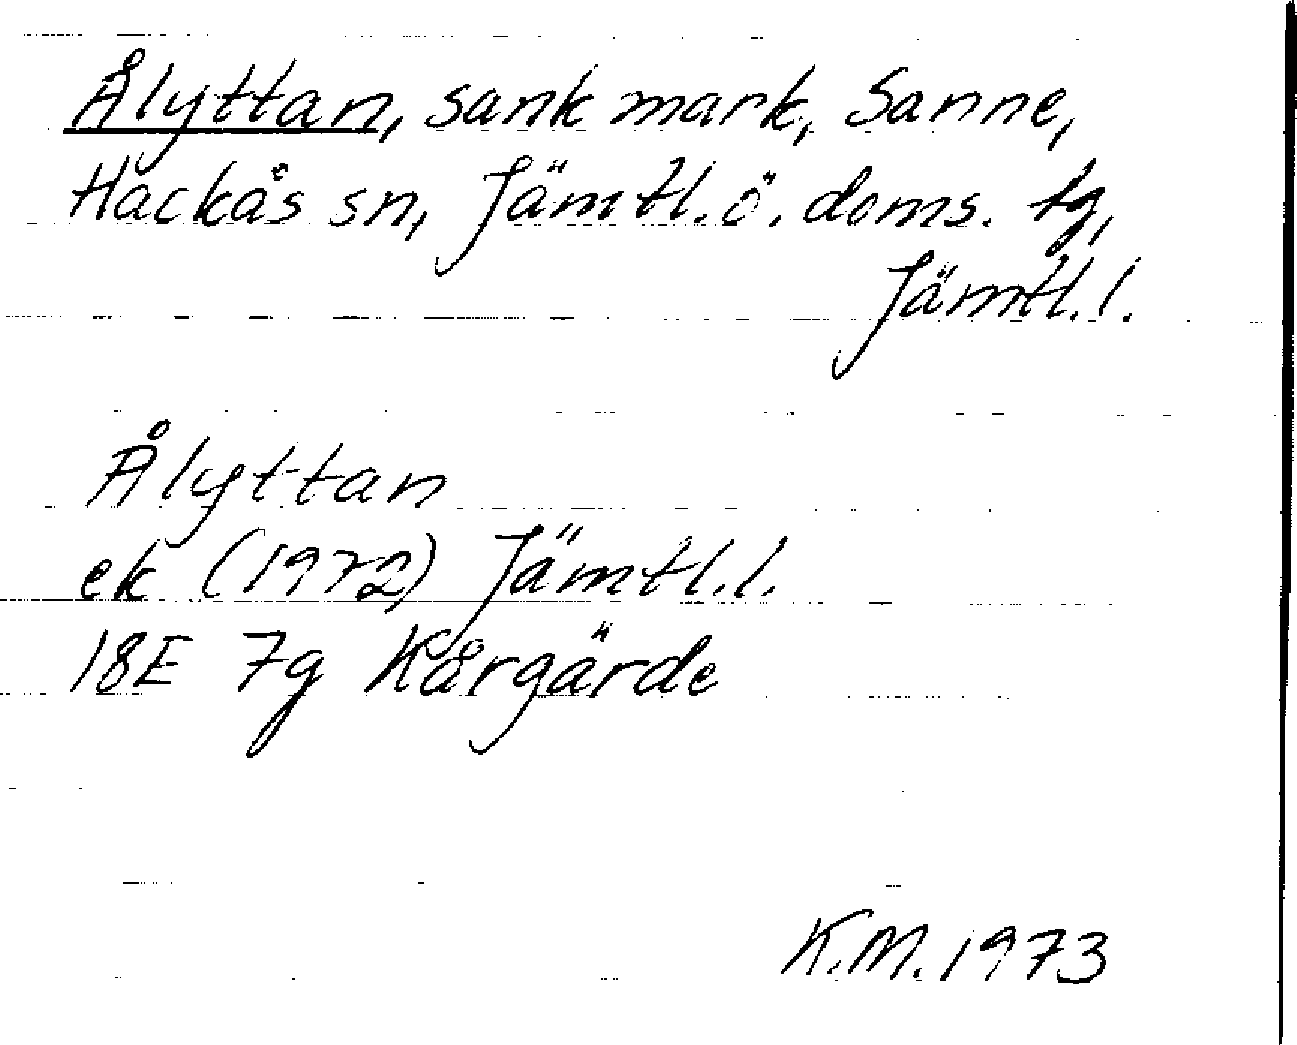 Ålyttan, sank mark, Sanne,
Hackås sn, Jämtl. ö. doms. tg,
Jämtl. l.
Ålyttan
ek (1972) Jämtl. l.
18E 7g Kårgärde
K.M. 1973